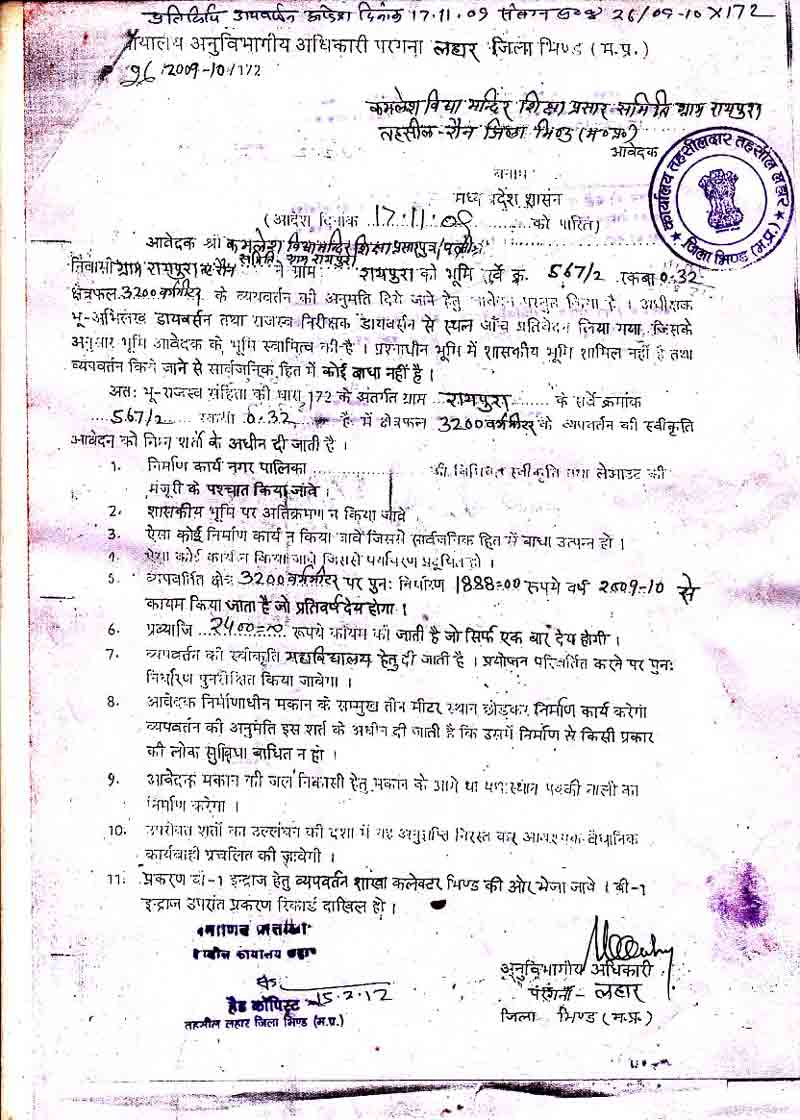 प्रतिलिपि व्यपवर्तन आदेश दिनांक 17.11.09 संलग्न 26/09-10 X172
न्यायालय अनुविभागीय अधिकारी परगना लहार जिला भिण्ड (म.प्र.)
26/2009-10/172
कमलेश विद्या मन्दिर शिक्षा प्रसार समिति ग्राम रायपुरा
तहसील-रौन जिला भिण्ड (म०प्र०)
आवेदक
कार्यालय तहसीलदार तहसील लहार
जिला भिण्ड (म.प्र.)
बनाम
मध्य प्रदेश शासन
(आदेश दिनांक 17.11.09 को पारित)
आवेदक श्री कमलेश विद्या मन्दिर शिक्षा प्रसार पुत्र/पत्नी श्री
समिति ग्राम रायपुरा
निवासी ग्राम रायपुरा रौन ने ग्राम रायपुरा की भूमि सर्वे क्र. 567/2 रकबा 0.32
क्षेत्रफल 3200 वर्गमीटर के व्यपवर्तन की अनुमति दिये जाने हेतु आवेदन प्रस्तुत किया है । अधीक्षक
भू-अभिलेख डायवर्सन तथा राजस्व निरीक्षक डायवर्सन से स्थल जाँच प्रतिवेदन लिया गया, जिसके
अनुसार भूमि आवेदक के भूमि स्वामित्व की है । प्रश्नाधीन भूमि में शासकीय भूमि शामिल नहीं है तथा
व्यपवर्तन किये जाने से सार्वजनिक हित में कोई बाधा नहीं है ।
अतः भू-राजस्व संहिता की धारा 172 के अंतर्गत ग्राम रायपुरा के सर्वे क्रमांक
567/2 रकबा 0.32 है. में क्षेत्रफल 3200 वर्गमीटर के व्यपवर्तन की स्वीकृति
आवेदन को निम्न शर्तो के अधीन दी जाती है ।
1. निर्माण कार्य नगर पालिका की विधिवत स्वीकृति तथा लेआउट की
मंजूरी के पश्चात किया जावे ।
2. शासकीय भूमि पर अतिक्रमण न किया जावे
3. ऐसा कोई निर्माण कार्य न किया जावे जिससे सार्वजनिक हित में बाधा उत्पन्न हो ।
4. ऐसा कोई कार्य न किया जावे जिससे पर्यावरण प्रदूषित हो ।
5. व्यपवर्तित क्षेत्र 3200 वर्गमीटर पर पुनः निर्धारण 1888=00 रूपये वर्ष 2009-10 से
कायम किया जाता है जो प्रतिवर्ष देय होगा ।
6. प्रव्याजि 2400=00 रूपये कायम की जाती है जो सिर्फ एक बार देय होगी ।
7. व्यपवर्तन की स्वीकृति महाविद्यालय हेतु दी जाती है । प्रयोजन परिवर्तित करने पर पुनः
निर्धारण पुनरीक्षित किया जावेगा ।
8. आवेदक निर्माणाधीन मकान के सम्मुख तीन मीटर स्थान छोड़कर निर्माण कार्य करेगा
व्यपवर्तन की अनुमति इस शर्त के अधीन दी जाती है कि उसमें निर्माण से किसी प्रकार
की लोक सुविधा बाधित न हो ।
9. आवेदक मकान की जल निकासी हेतु मकान के आगे पक्की नाली का
निर्माण करेगा ।
10. उपरोक्त शर्तो का उल्लंघन की दशा में यह अनुज्ञप्ति निरस्त कर आवश्यक वैधानिक
कार्यवाही प्रचलित की जावेगी ।
11. प्रकरण बी-1 इन्द्राज हेतु व्यपवर्तन शाखा कलेक्टर भिण्ड की ओर भेजा जावे । बी-1
इन्द्राज उपरांत प्रकरण रिकार्ड दाखिल हो ।
अनुविभागीय अधिकारी
परगना - लहार
जिला भिण्ड (म.प्र.)
हैड कॉपिस्ट 15.2.12
तहसील लहार जिला भिण्ड (म.प्र.)